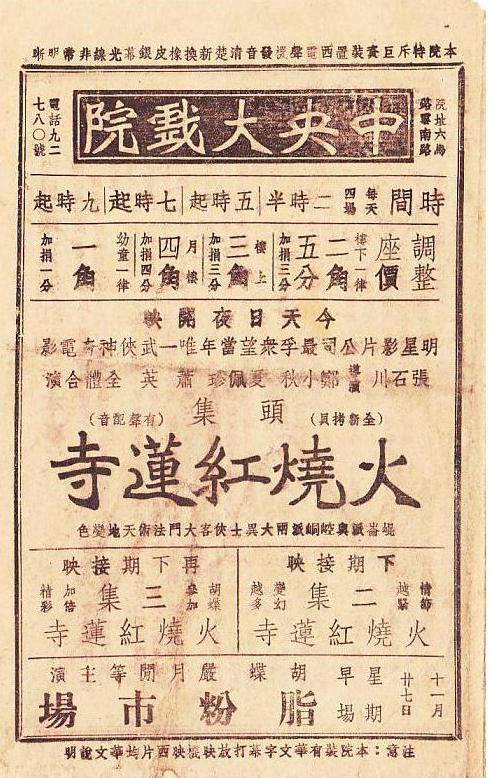 本院特斥巨資裝置西電聲機發音清楚新換橡皮銀幕光線非常明晰
院址六馬
路雲南路
中央大戲院
電話九二
七八〇號
時間 每天四場 二時半 五時起 七時起 九時起
調整座價 樓下一律 二角五分 加捐三分 樓上 三角 加捐三分 月樓 四角 加捐四分 幼童一律 一角 加捐一分
今天日夜開映
明星影片公司最孚眾望當年唯一武俠神奇電影
張石川 導演 鄭小秋 夏佩珍 蕭英 全體合演
(全新拷貝) 頭集 (有聲配音)
火燒紅蓮寺
崐崙派與崆峒派兩大異士俠客大鬥法術天地變色
下期接映
情節越緊 二集 變幻越多
火燒紅蓮寺
再下期接映
胡蝶參加 三集 加倍精彩
火燒紅蓮寺
十一月廿七日
星期早場
胡蝶 嚴月閒等主演
脂粉市場
注意：本院裝有華文字幕打放映機映西片均華文說明